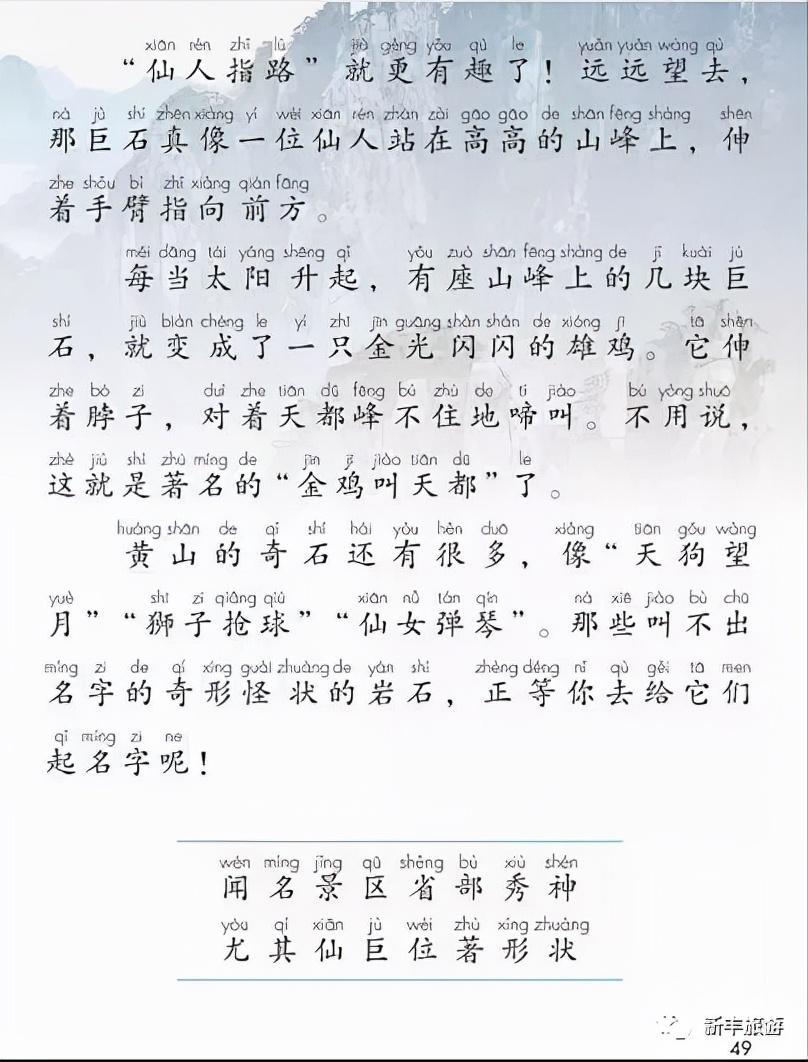 xiān rén zhǐ lù jiù gèng yǒu qù le yuǎn yuǎn wàng qù
“仙人指路”就更有趣了！远远望去，
nà jù shí zhēn xiàng yí wèi xiān rén zhàn zài gāo gāo de shān fēng shàng shēn
那巨石真像一位仙人站在高高的山峰上，伸
zhe shǒu bì zhǐ xiàng qián fāng
着手臂指向前方。
měi dāng tài yáng shēng qǐ yǒu zuò shān fēng shàng de jǐ kuài jù
每当太阳升起，有座山峰上的几块巨
shí jiù biàn chéng le yì zhī jīn guāng shǎn shǎn de xióng jī tā shēn
石，就变成了一只金光闪闪的雄鸡。它伸
zhe bó zi duì zhe tiān dū fēng bú zhù de tí jiào bú yòng shuō
着脖子，对着天都峰不住地啼叫。不用说，
zhè jiù shì zhù míng de jīn jī jiào tiān dū le
这就是著名的“金鸡叫天都”了。
huáng shān de qí shí hái yǒu hěn duō xiàng tiān gǒu wàng
黄山的奇石还有很多，像“天狗望
yuè shī zi qiǎng qiú xiān nǚ tán qín nà xiē jiào bù chū
月”“狮子抢球”“仙女弹琴”。那些叫不出
míng zi de qí xíng guài zhuàng de yán shí zhèng děng nǐ qù gěi tā men
名字的奇形怪状的岩石，正等你去给它们
qǐ míng zi ne
起名字呢！
wén míng jǐng qū shěng bù xiù shén
闻名景区省部秀神
yóu qí xiān jù wèi zhù xíng zhuàng
尤其仙巨位著形状
新丰旅游
49